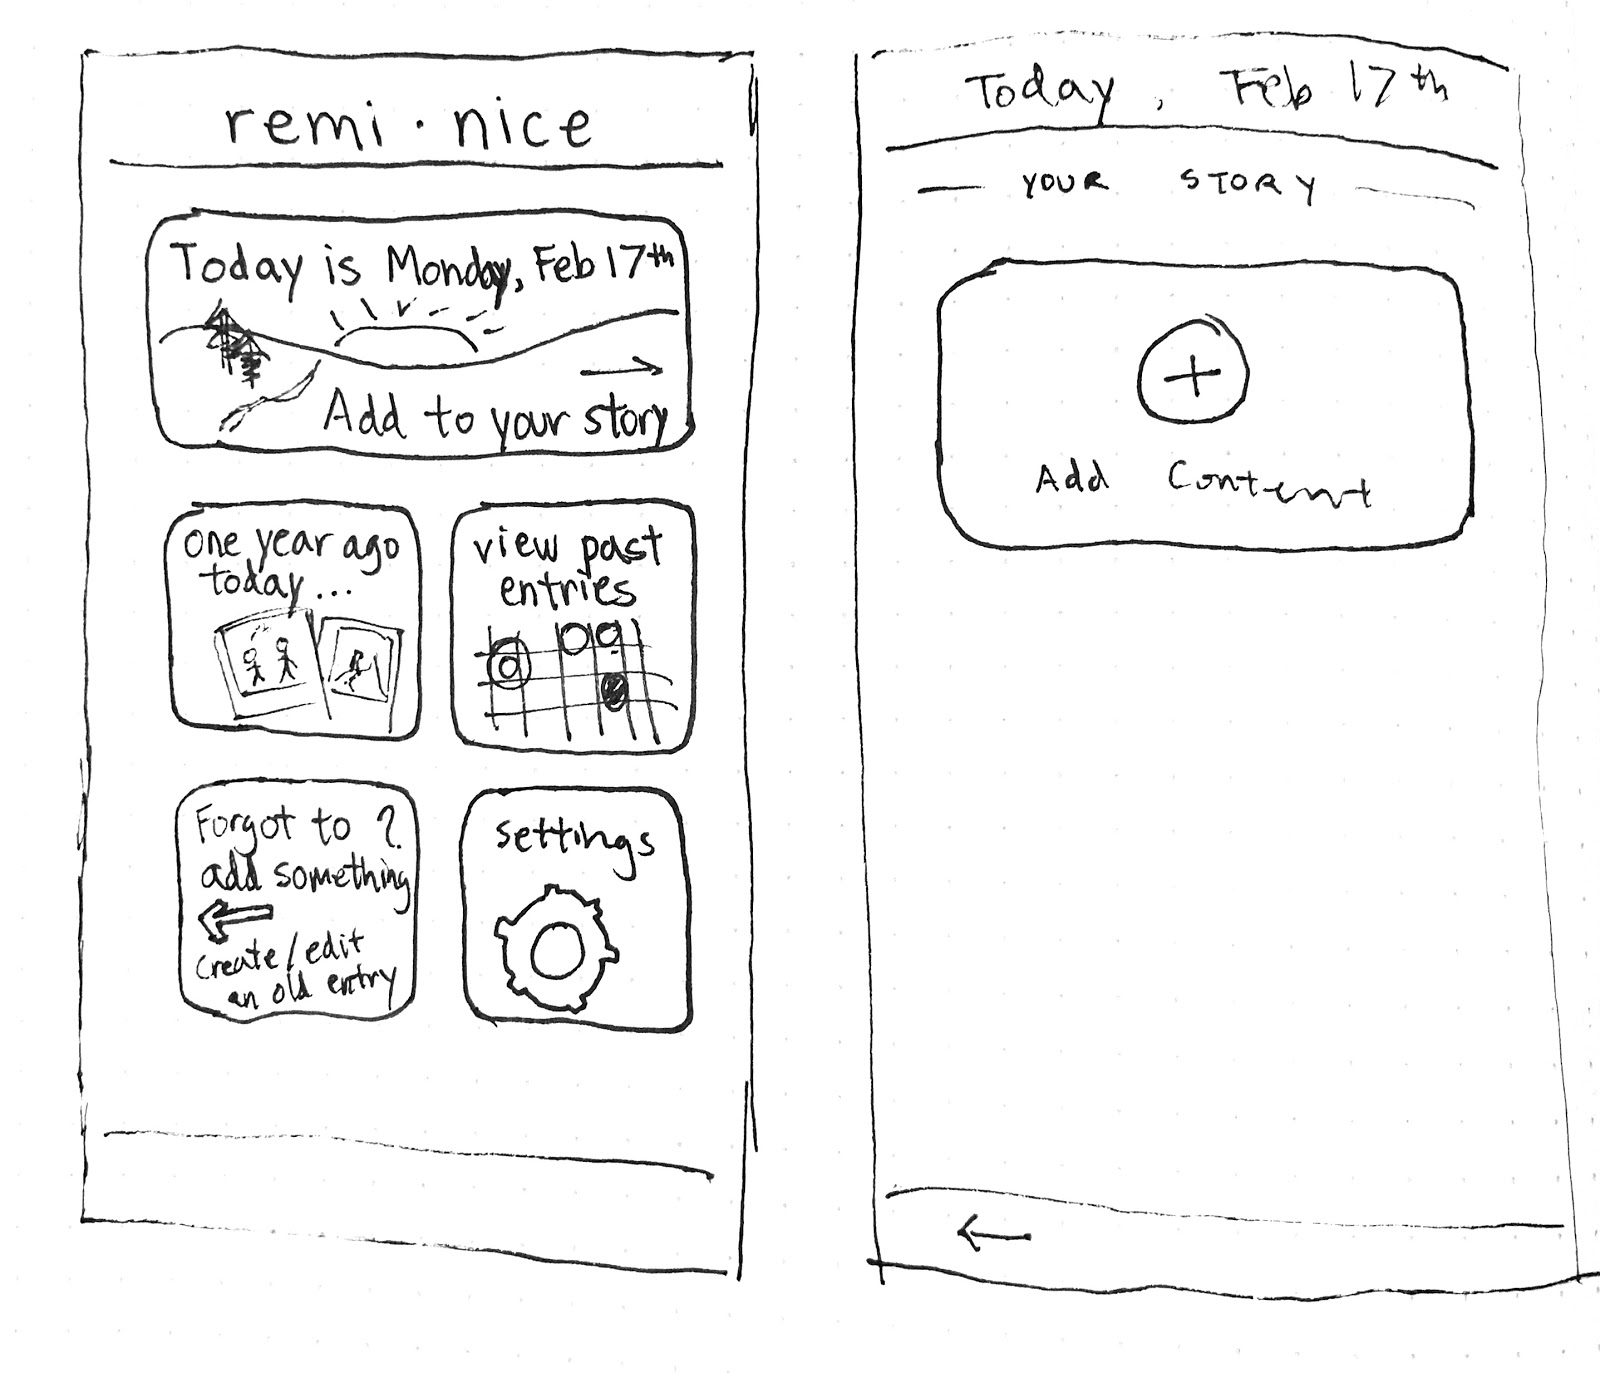 remi · nice
Today is Monday, Feb 17th
Add to your story
one year ago
today...
view past
entries
Forgot to ?
add something
create/edit
an old entry
settings
Today, Feb 17th
YOUR STORY
+
Add Content